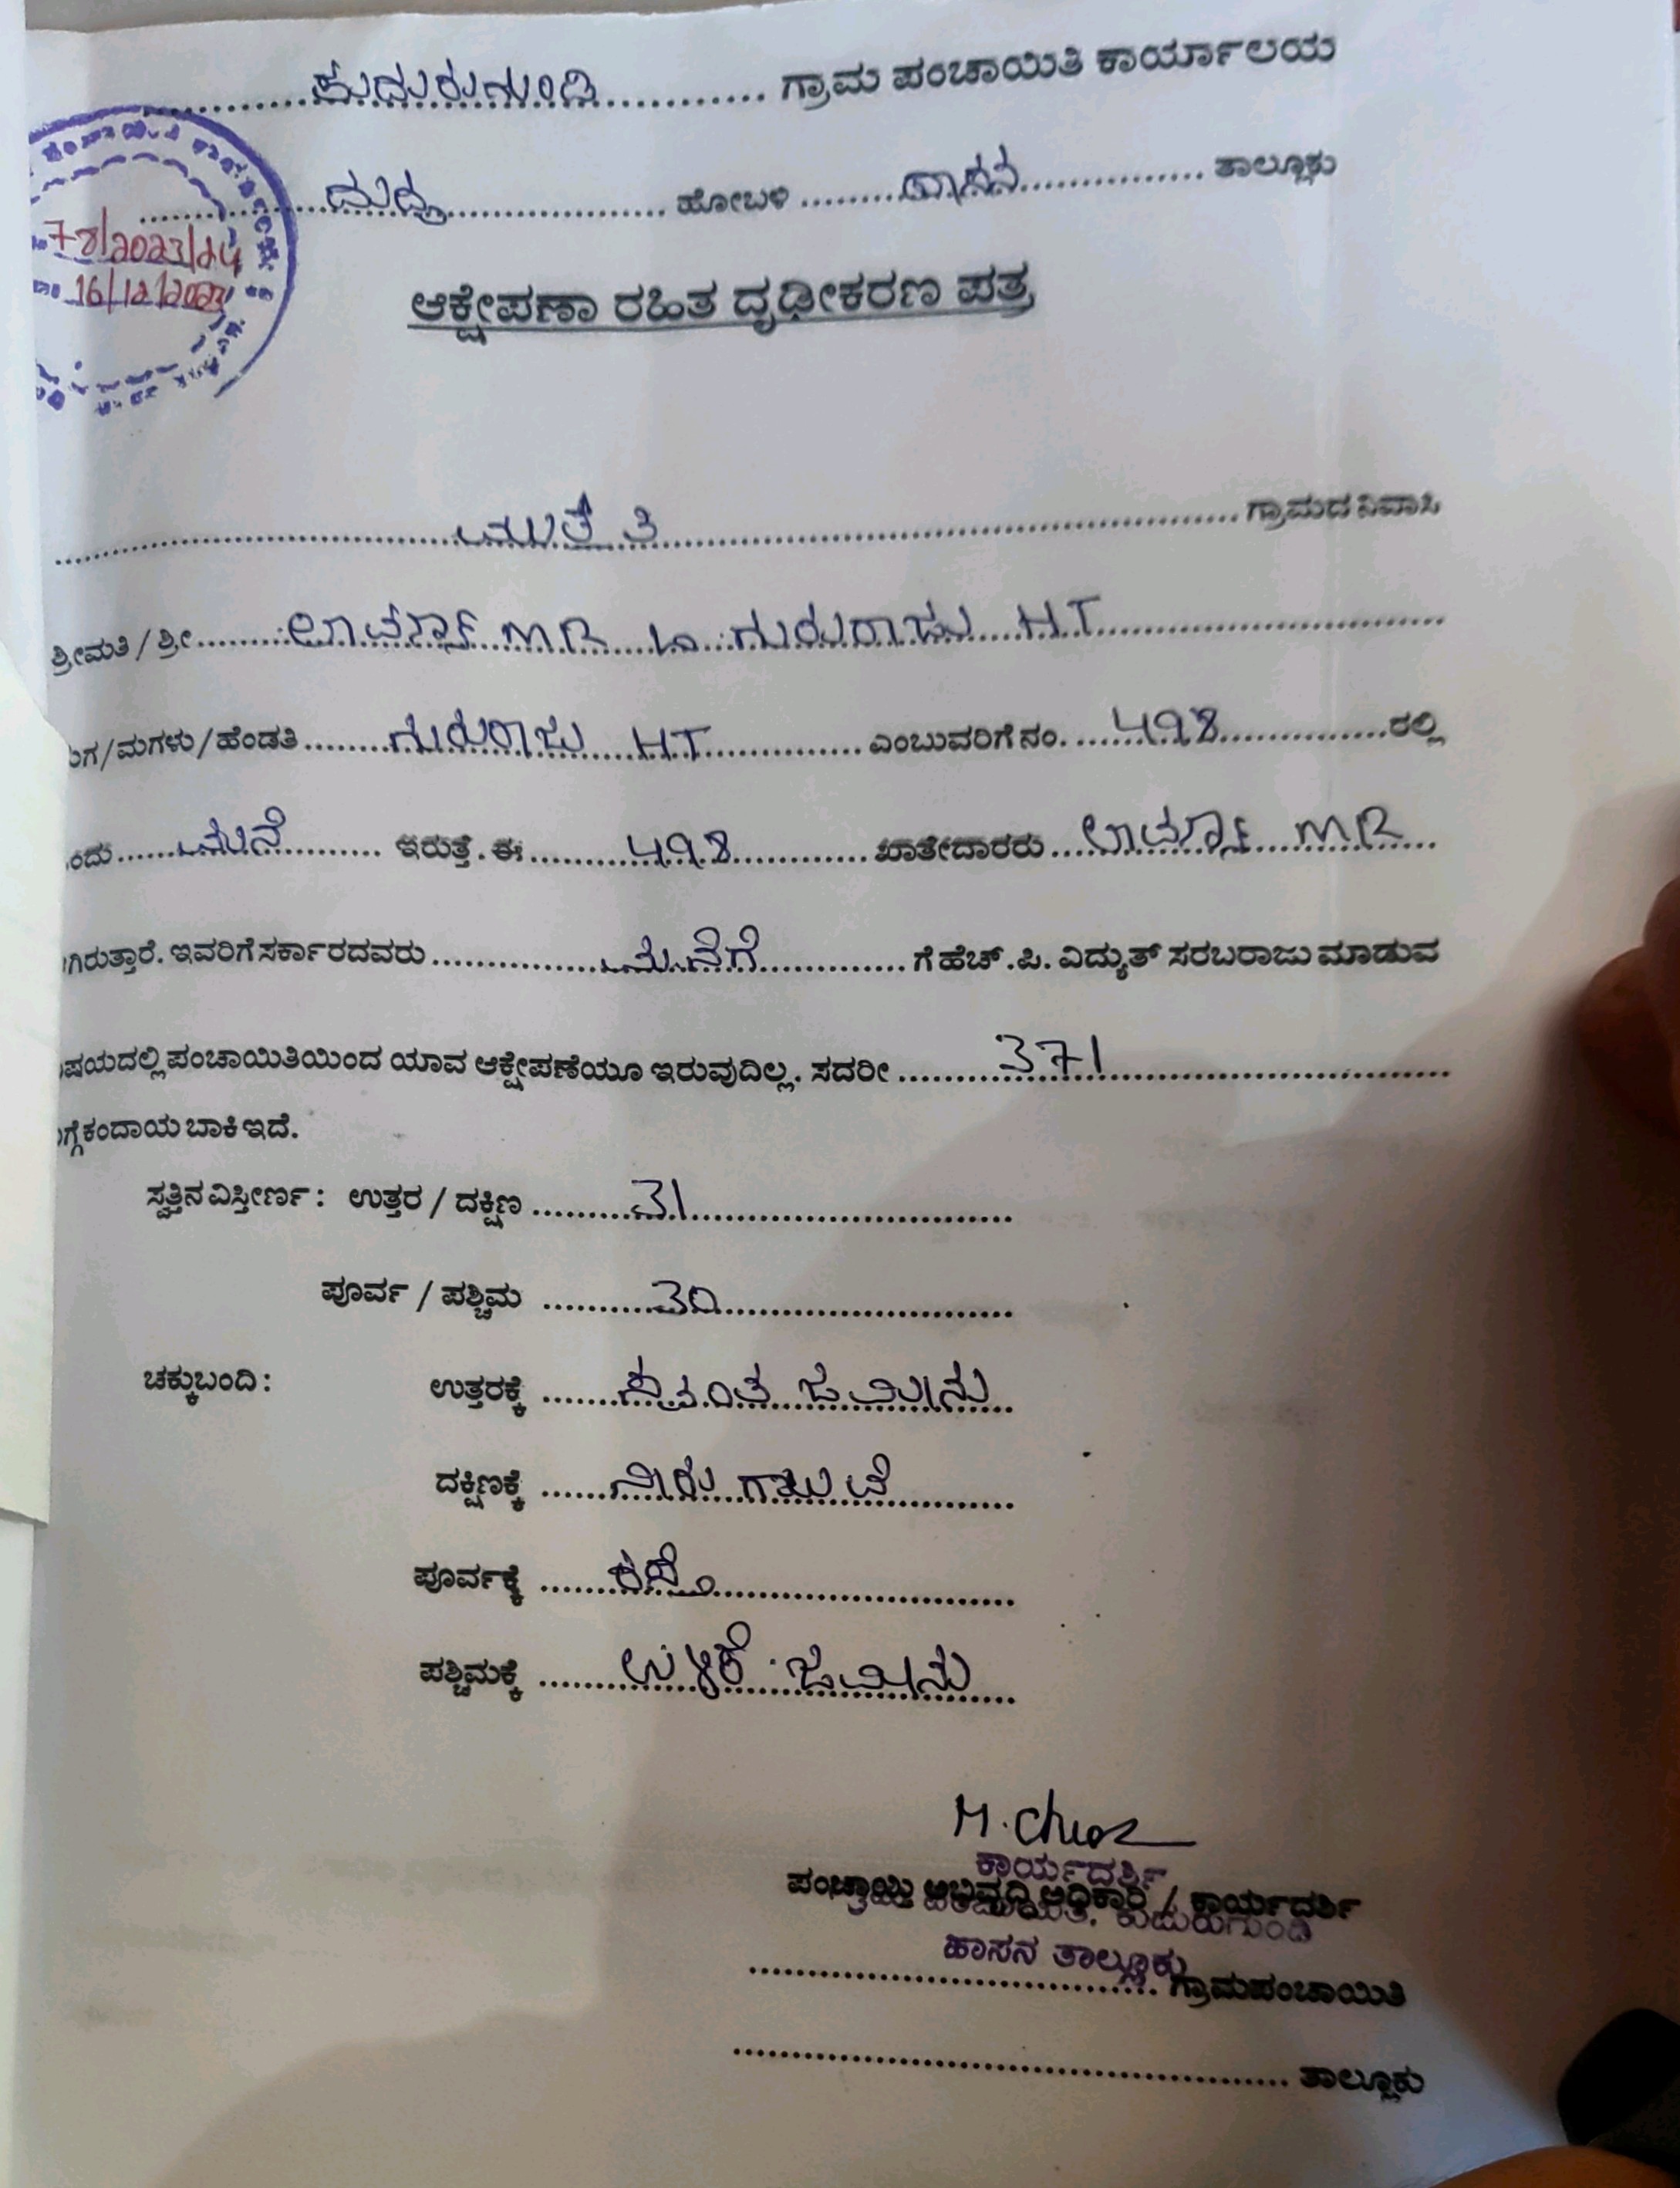 ಕುದುರುಗುಂಡಿ ಗ್ರಾಮ ಪಂಚಾಯಿತಿ ಕಾರ್ಯಾಲಯ
ದುದ್ದ ಹೋಬಳಿ ಹಾಸನ ತಾಲ್ಲೂಕು
78/2023/24
16/12/2023
ಆಕ್ಷೇಪಣಾ ರಹಿತ ದೃಢೀಕರಣ ಪತ್ರ
ಮುತ್ತತಿ ಗ್ರಾಮದ ನಿವಾಸಿ
ಶ್ರೀಮತಿ / ಶ್ರೀ ಲಾವಣ್ಯ MR ಗುರುರಾಜು HT
ಮಗ/ಮಗಳು/ಹೆಂಡತಿ ಗುರುರಾಜು HT ಎಂಬುವರಿಗೆ ನಂ. 498 ರಲ್ಲಿ
ಂದು ಮನೆ ಇರುತ್ತೆ. ಈ 498 ಖಾತೇದಾರರು ಲಾವಣ್ಯ MR
ಗಿರುತ್ತಾರೆ. ಇವರಿಗೆ ಸರ್ಕಾರದವರು ಮನೆಗೆ ಗೆ ಹೆಚ್.ಪಿ. ವಿದ್ಯುತ್ ಸರಬರಾಜು ಮಾಡುವ
ಷಯದಲ್ಲಿ ಪಂಚಾಯಿತಿಯಿಂದ ಯಾವ ಆಕ್ಷೇಪಣೆಯೂ ಇರುವುದಿಲ್ಲ. ಸದರೀ 371
ಗ್ಗೆ ಕಂದಾಯ ಬಾಕಿ ಇದೆ.
ಸ್ವತ್ತಿನ ವಿಸ್ತೀರ್ಣ : ಉತ್ತರ / ದಕ್ಷಿಣ 31
ಪೂರ್ವ / ಪಶ್ಚಿಮ 30
ಚಕ್ಕುಬಂದಿ : ಉತ್ತರಕ್ಕೆ ಸ್ವಂತ ಜಮೀನು
ದಕ್ಷಿಣಕ್ಕೆ ನೀರು ಗಾಲುವೆ
ಪೂರ್ವಕ್ಕೆ ರಸ್ತೆ
ಪಶ್ಚಿಮಕ್ಕೆ ಉಳಿಕೆ ಜಮೀನು
ಕಾರ್ಯದರ್ಶಿ
ಪಂಚಾಯ್ತಿ ಅಭಿವೃದ್ಧಿ ಅಧಿಕಾರಿ / ಕಾರ್ಯದರ್ಶಿ
ಗ್ರಾಮ ಪಂಚಾಯಿತಿ, ಕುದುರುಗುಂಡಿ
ಹಾಸನ ತಾಲ್ಲೂಕು
ಗ್ರಾಮಪಂಚಾಯಿತಿ
ತಾಲ್ಲೂಕು